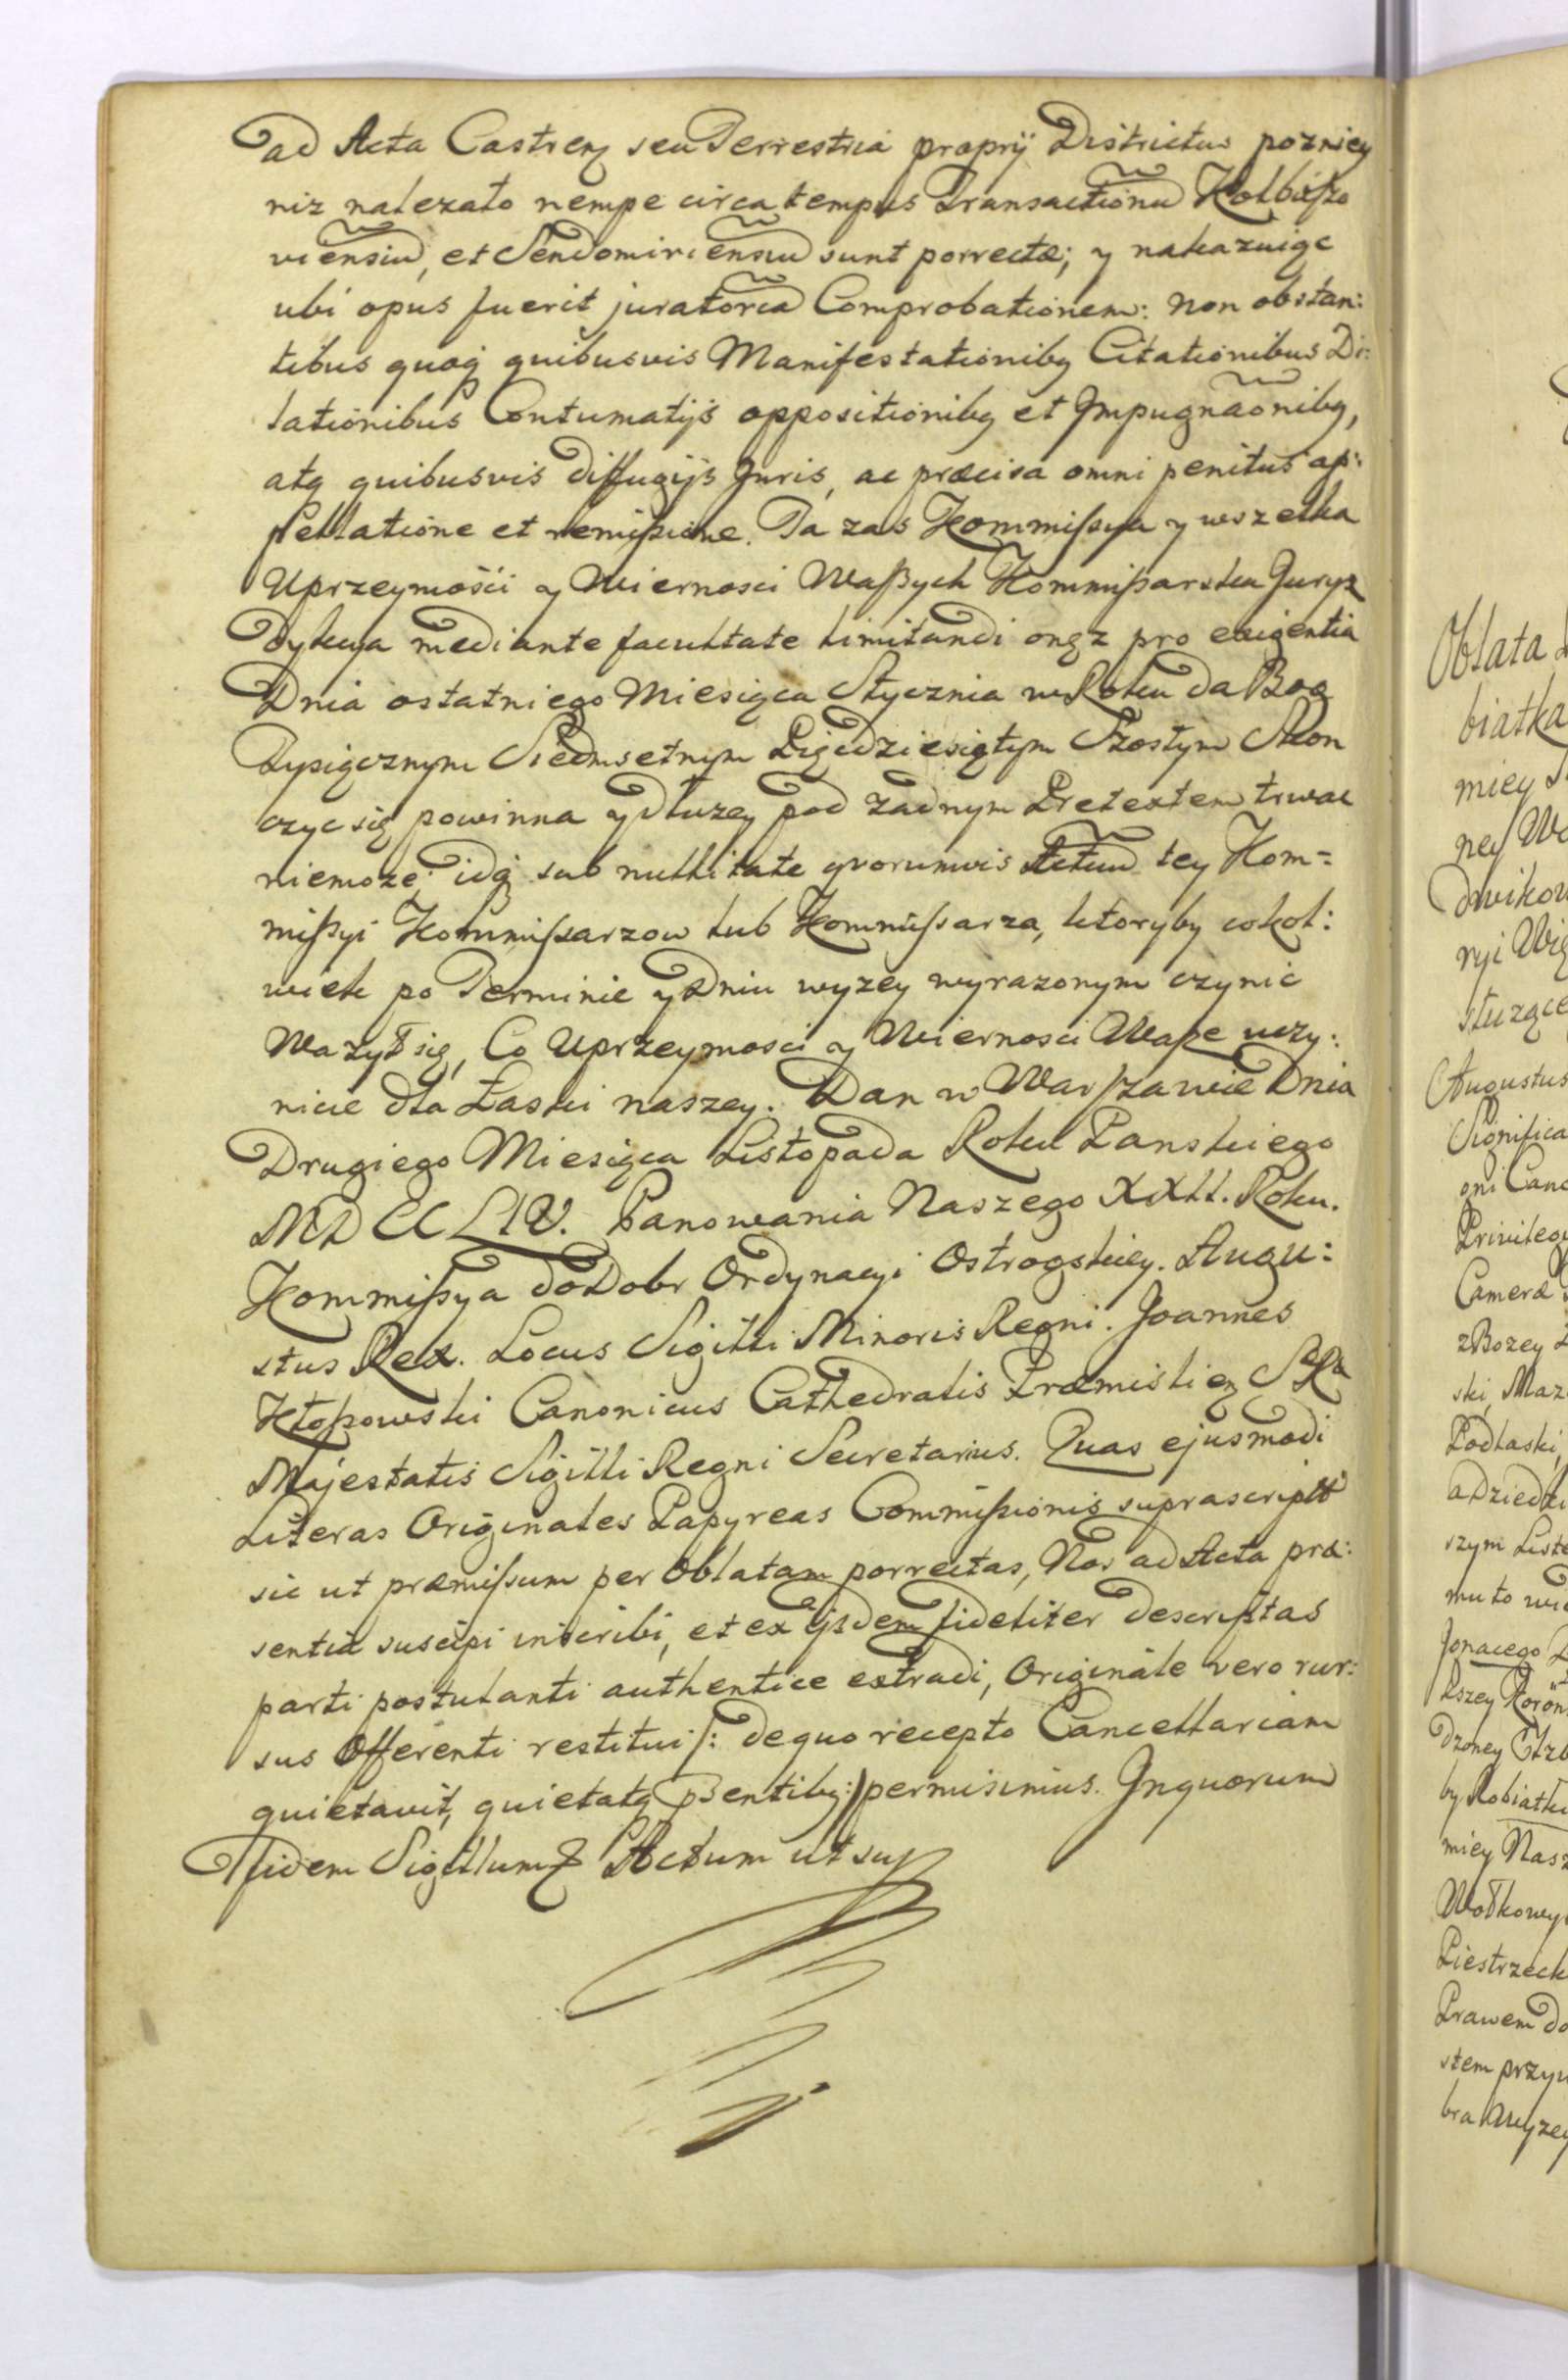 ad Acta Castren seu Terrestria proprij Districtus pozniey
niz nalezało nempe circa tempus Transactionu Kolbuszo
viensiu, et Sendomiriensiu sunt porrectæ; y nakazuiąc
ubi opus fuerit juratoria Comprobationem: non obstan:
tibus quoq quibusvis Manifestationibq Citationibus Di:
lationibus Contumatijs oppositionibq et Impugnaonibq,
atq quibusvis diffugijs Juris, ac præcisa omni penitus ap:
pellatione et remissione. Ta zas Kommissya y wszelka
Uprzeymości y Wiernosci Waszych Kommissarska Juryz
dykcya mediante facultate limitandi onęz pro exigentia
Dnia ostatniego Miesiąca Stycznia w Roku da Bog
Tysiącznym Siedmsetnym Pięcdziesiątym Szostym Skon
czyc się powinna y dłuzey pod zadnym Pretextem trwac
niemoze; idq sub nullitate quorumvis Actuu tey Kom=
missyi Kommissarzow lub Kommissarza, ktoryby cokol:
wiek po Terminie y Dniu wyzey wyrazonym czynic
Wazył się, Co Uprzeymosci y Wiernosci Wasze uczy:
nicie dla Łaski naszey. Dan w Warszawie Dnia
Drugiego Miesiąca Listopada Roku Panskiego
MDCCLIV. Panowania Naszego XXII. Roku.
Kommissya do Dobr Ordynacyi Ostrogskiey. Augu:
stus Rex. Locus Sigilli Minoris Regni. Joannes
Kłossowski Canonicus Cathedralis Præmislien S R
Majestatis Sigilli Regni Secretarius. Quas ejusmodi
Literas Originales Papyreas Commissionis suprascriptt
sic ut præmissum per Oblatam porrectas, Nos ad Acta præ:
sentia suscipi inscribi, et ex ijsdem fideliter descriptas
parti postulanti authentice extradi, Originale vero rur:
sus Offerenti restitui /: de quo recepto Cancellariam
quietavit, quietatq psentibq :/ permisimus. In quorum
fidem Sigillum Actum ut sup
Oblata
białka
miey
ney
dwikow
ryi
słuzące
Augustus
Significa
gni Canc
Privileg
Cameræ
z Bozey
ski, Maz
Podlaski,
a Dziedzi
szym Liste
mu to wie
Ignacego
kszey Koron
dzoney
by Kobiałki
miey Nasz
Wołkowy
Piestrzeck
Prawem do
stem przyw
bra Wyzey